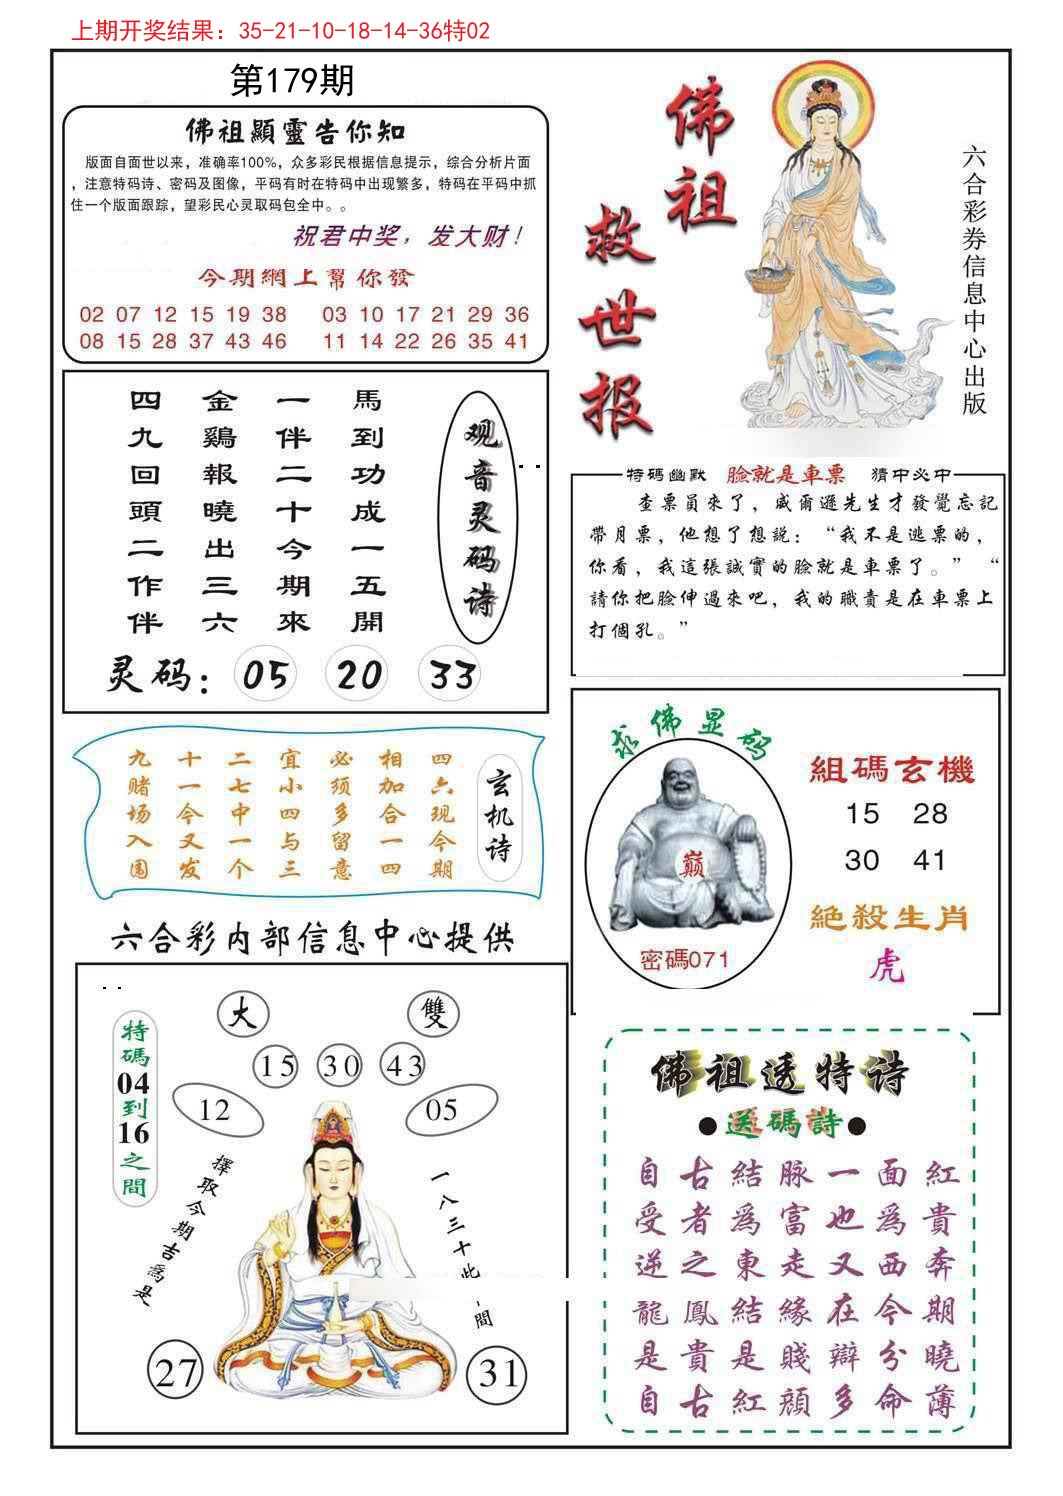 上期开奖结果：35-21-10-18-14-36特02
第179期
佛祖顯靈告你知
版面自面世以来，准确率100%，众多彩民根据信息提示，综合分析片面
，注意特码诗、密码及图像，平码有时在特码中出现繁多，特码在平码中抓
住一个版面跟踪，望彩民心灵取码包全中。。
祝君中奖，发大财！
今期網上幫你發
02 07 12 15 19 38 03 10 17 21 29 36
08 15 28 37 43 46 11 14 22 26 35 41
佛祖
救世报
六合彩券信息中心出版
观音灵码诗
馬到功成一五開
一伴二十今期來
金鷄報曉出三六
四九回頭二作伴
灵码：05 20 33
特碼幽默 臉就是車票 猜中必中
查票員來了，威爾遜先生才發覺忘記
帶月票，他想了想説：“我不是逃票的，
你看，我這張誠實的臉就是車票了。” “
請你把臉伸過來吧，我的職責是在車票上
打個孔。”
玄机诗
四六现今期
相加合一四
必须多留意
宜小四与三
二七中一个
十一今又发
九赌场入围
求佛显码
巅
密碼071
組碼玄機
15 28
30 41
絕殺生肖
虎
六合彩内部信息中心提供
特碼04到16之間
大 雙
15 30 43
12 05
擇取今期吉爲是
一八三十此間
27 31
佛祖透特诗
●送碼詩●
自古結脉一面紅
受者爲富也爲貴
逆之東走又西奔
龍鳳結緣在今期
是貴是賤辯分曉
自古紅顔多命薄